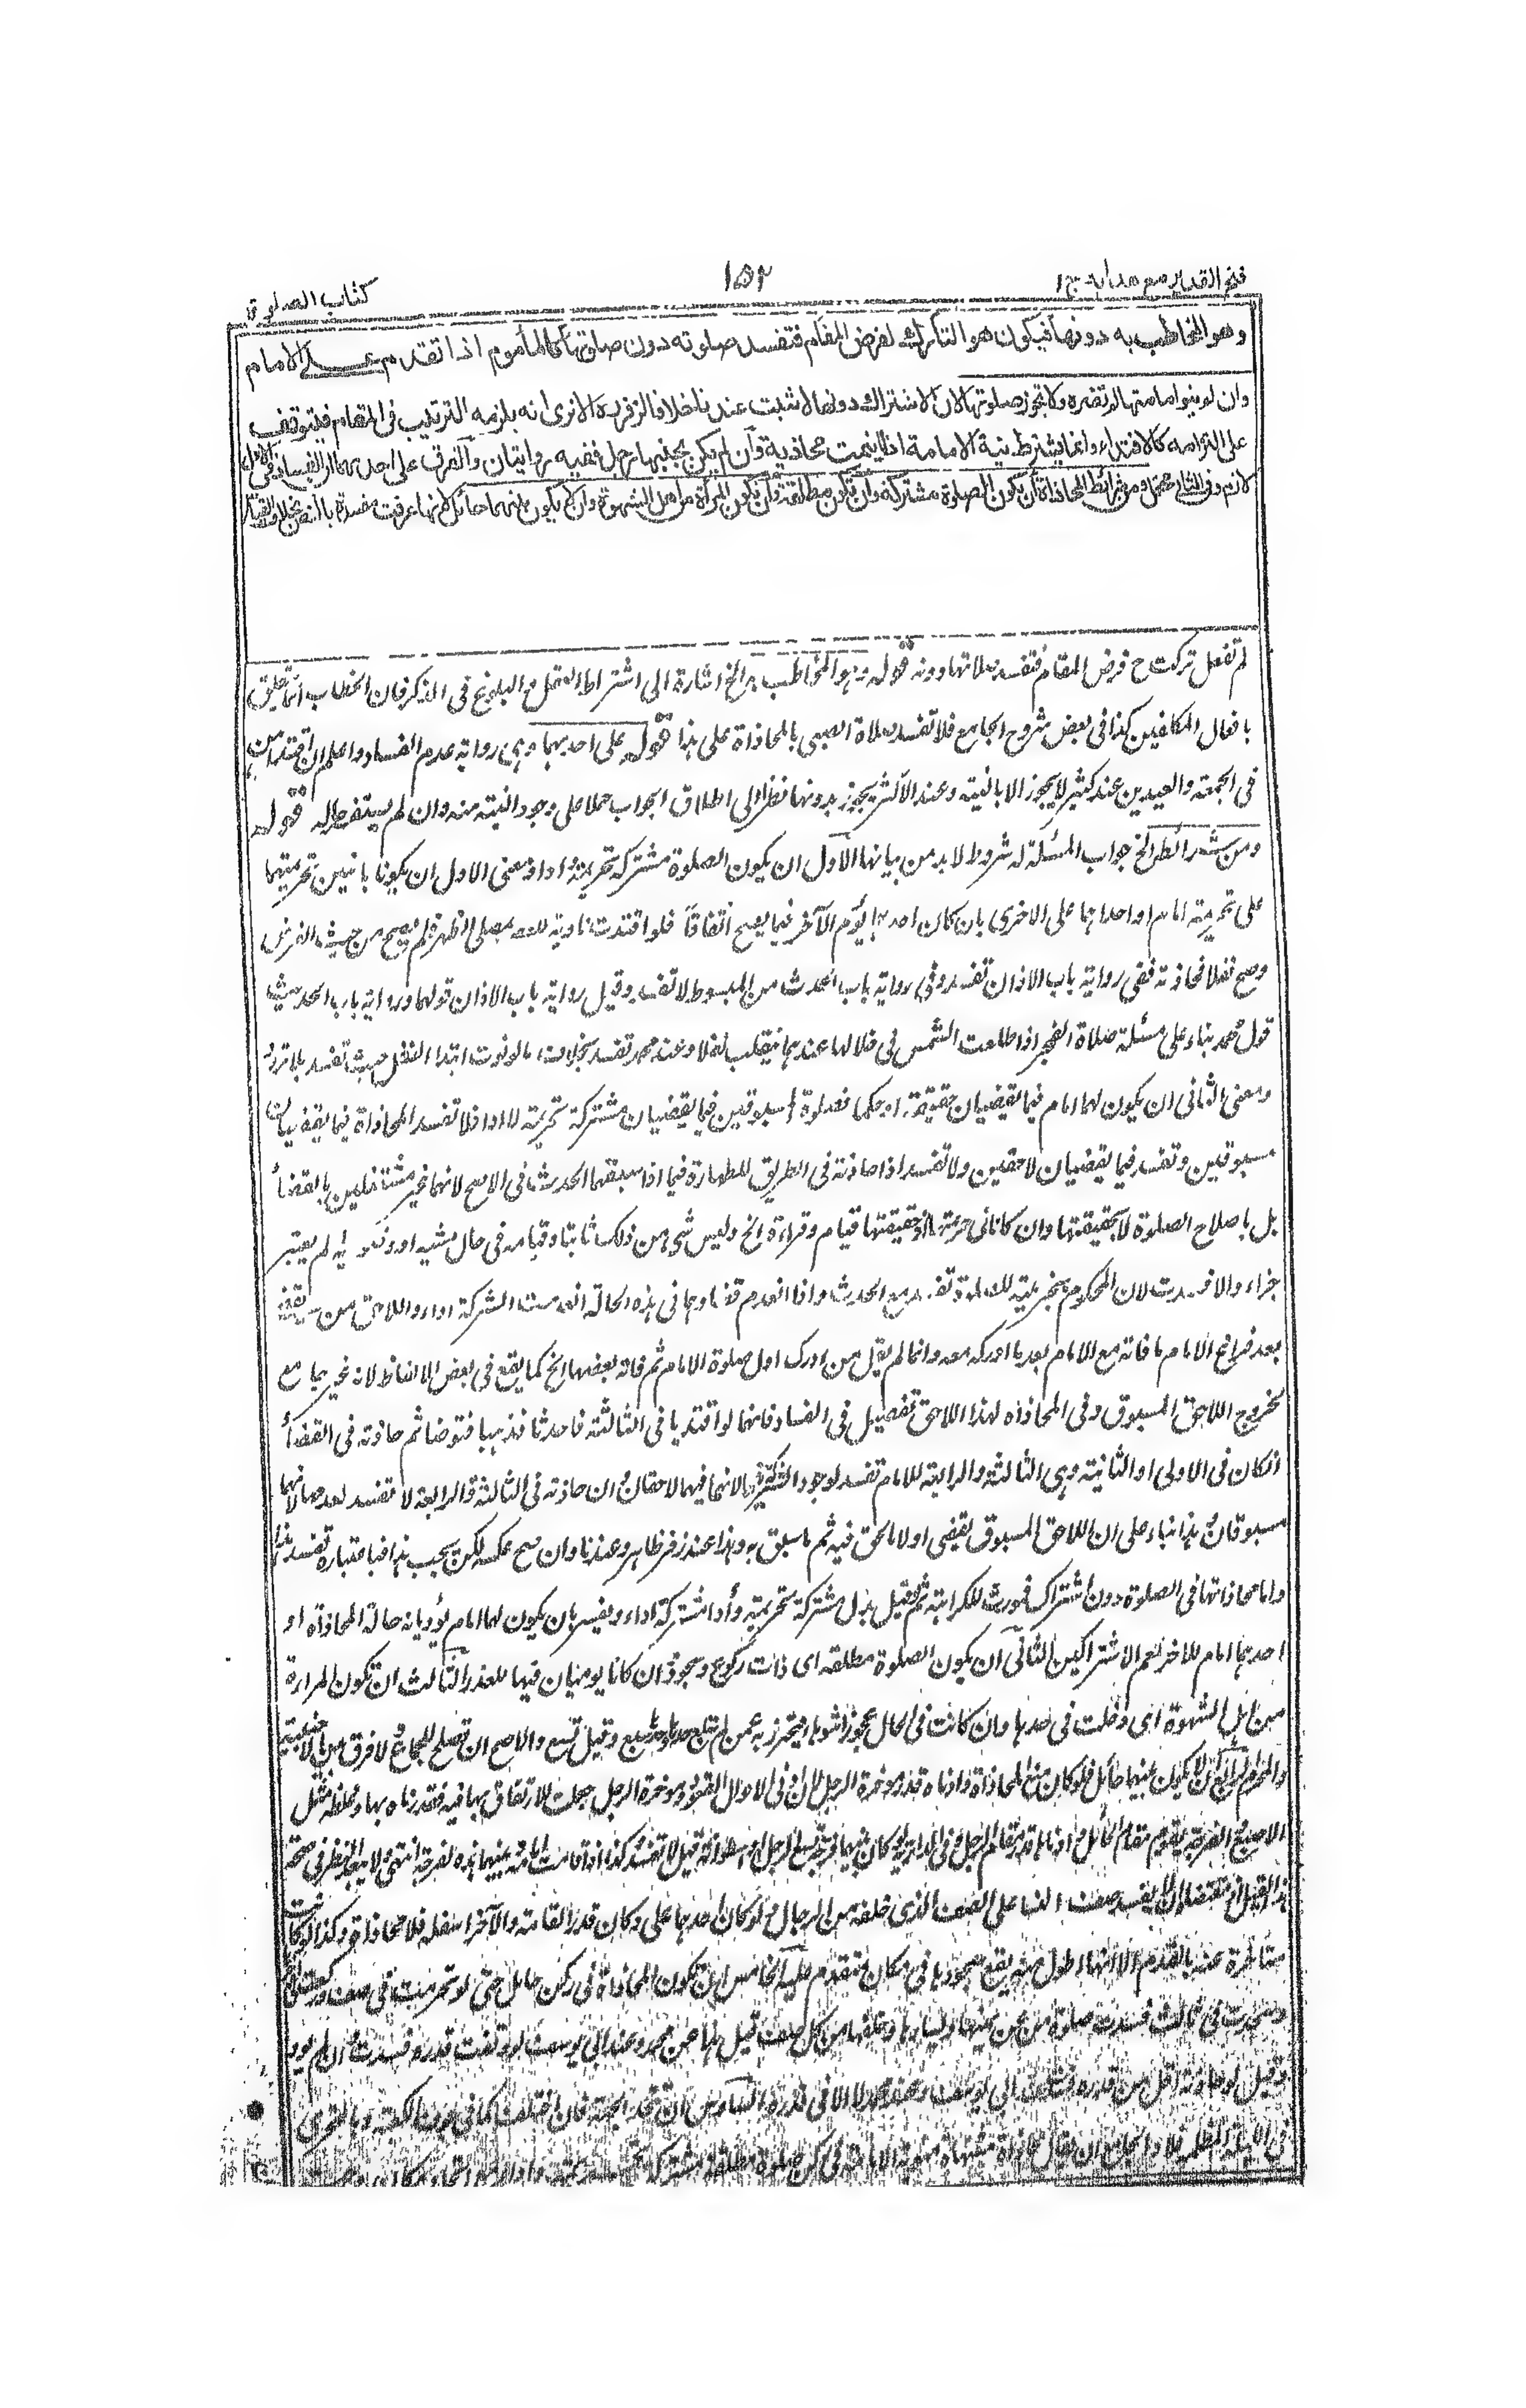 فتح القدير مع هداية ج ١
١٥٢
كتاب الصلوة
وهو المخاطب به دونها فيكون هو التارك لفرض المقام فتفسد صلوته دون صلوتها كالمأموم اذا تقدم على الامام
وان لم ينوا مامتها لم تضره ولا تجوز صلوتها لان الاشتراك دونها لا يثبت عندنا خلافا لزفر ره الا ترى انه يلزمه الترتيب فى المقام فيتوقف
على التزامه كالاقتداء وانما يشترط نية الامامة اذا ايتمت محاذية وان لم يكن بجنبها رجل ففيه روايتان والفرق على احدىهما ان الفساد فى الاول
لازم وفى الثانى محتمل ومن شرائط المحاذاة ان تكون الصلوة مشتركة وان تكون مطلقة وان تكون المرأة من اهل الشهوة وان لا يكون بينهما حائل لانها عرفت مفسدة بالنص بخلاف القياس
لم تفعل تركت ح فرض المقام فتفسد صلاتها دونه قوله وهو المخاطب به الخ اشارة الى اشتراط العقل والبلوغ فى الذكر فان الخطاب انما يتعلق
بافعال المكلفين كذا فى بعض شروح الجامع فلا تفسد صلاة الصبى بالمحاذاة على هذا قوله على احدىهما وهى رواية عدم الفساد واعلم ان اقتداءهن
فى الجمعة والعيدين عند كثير لا يجوز الا بالنية وعند الاكثر يجوز بدونها نظرا الى اطلاق الجواب حملا على وجود النية منه وان لم يستفصل قوله
ومن شرائط الخ جواب المسئلة له شروط لا بد من بيانها الاول ان يكون الصلوة مشتركة تحريمة واداء فمعنى الاول ان يكونا بانيين تحريمتهما
على تحريمة امام او احداهما على الاخرى بان كان احدهما يؤم الآخر فيما يصح اتفاقا فلو اقتدت ناوية للعصر بمصلى الظهر فلم يصح من حيث الفرض
وصح نفلا فحاذته ففى رواية باب الاذان تفسد وفى رواية باب الحدث من المبسوط لا تفسد وقيل رواية باب الاذان قولهما ورواية باب الحديث
قول محمد بناء على مسئلة صلاة الفجر اذا طلعت الشمس فى خلالها عندهما ينقلب نفلا وعند محمد تفسد بخلاف ما لو نوت ابتداء النفل حيث تفسد بلا تردد
ومعنى الثانى ان يكون لهما امام فيما يقضيان حقيقة او حكما فصلوة المسبوقين فيما يقضيان مشتركة تحريمة لا اداء فلا تفسد المحاذاة فيما يقضيان
مسبوقين وتفسد فيما يقضيان لاحقين ولا تفسد اذا حاذته فى الطريق للطهارة فيما اذا سبقهما الحدث فى الاصح لانهما غير مشتغلين بالقضاء
بل باصلاح الصلوة لا بحقيقتها وان كانا فى حرمتها اذ حقيقتها قيام وقراءة الخ وليس شىء من ذلك ثابتا وقيامه فى حال مشيه او وضوئه لم يعتبر
جزاء والا فسدت لان المحكوم بتحريمية للصلوة تفسد مع الحدث واذا انعدم قضاؤهما فى هذه الحالة انعدمت الشركة اداء واللاحق من يقضى
بعد فراغ الامام ما فاته مع الامام بعد ما ادركه معه وانما لم يقل من ادرك اول صلوة الامام ثم فاته بعضها الخ كما يقع فى بعض الالفاظ لانه غير جامع
لخروج اللاحق المسبوق وفى المحاذاة لهذا اللاحق تفصيل فى الفساد فانهما لو اقتديا فى الثالثة فاحدثا فذهبا فتوضئا ثم حاذته فى القضاء
ان كان فى الاولى او الثانية وهى الثالثة والرابعة للامام تفسد لوجود الشركة فيهما لانهما فيهما لاحقان وان حاذته فى الثالثة والرابعة لا تفسد لعدمها لانهما
مسبوقان وهذا بناء على ان اللاحق المسبوق يقضى اولا ما لحق فيه ثم ما سبق به وهذا عند زفر ظاهر وعندنا وان صح عكسه لكن يجب هذا فباعتباره تفسد
واما محاذاتها فى الصلوة دون اشتراك فمورث للكراهة ثم لو قيل بدل مشتركة تحريمة واداء مشتركة اداء ويفسر بان يكون لهما امام يؤديانه حالة المحاذاة او
احدهما امام للآخر لعم الاشتراكين الثانى ان يكون الصلوة مطلقة اى ذات ركوع وسجود وان كانا يوميان فيها للعذر الثالث ان تكون المرأة
من اهل الشهوة اى دخلت فى حدها وان كانت فى الحال عجوزا شوهاء فيتحرز به عمن لم تبلغ حدها وحدها سبع وقيل تسع والاصح ان تصلح للجماع ولا فرق بين الاجنبية
والمحرم الرابع ان لا يكون بينهما حائل فلو كان منع المحاذاة وادناه قدر مؤخرة الرحل لان ادنى الاحوال القعود ومؤخرة الرحل جعلت للارتفاق بها فيه فقدرناه بها وغلظه مثل
الاصبع والفرجة تقوم مقام الحائل وادناها قدر مقام الرجل وفى الدراية لو كان بينهما فرجة تسع الرجل او اسطوانة قيل لا تفسد وكذا اذا قامت امامه وبينهما هذه الفرجة انتهى ولا يبعد النظر فى صحة
هذا القيل اذ مقتضاه ان لا يفسد صف النساء على الصف الذى خلفه من الرجال ولو كان احدهما على دكان قدر القامة والآخر اسفله فلا محاذاة وكذا لو كانت
متأخرة عنه بالقدم الا انها اطول منه يقع سجودها فى مكان متقدم عليه الخامس ان تكون المحاذاة فى ركن كامل حتى لو تحرمت فى صف وركعت فى آخر
وسجدت فى ثالث فسدت صلوة من عن يمينها ويسارها وخلفها من كل صف قيل هذا عن محمد وعند ابى يوسف لو وقفت قدره فسدت وان لم تؤد
وقيل لو حاذته اقل من قدره فسدت عند ابى يوسف وعند محمد لا الا فى قدره السادس ان تتحد الجهة فان اختلفت كما فى جوف الكعبة وبالتحرى
فى الليلة المظلمة فلا والجامع ان يقال محاذاة مشتهاة منوية الامامة فى ركن صلوة مطلقة مشتركة